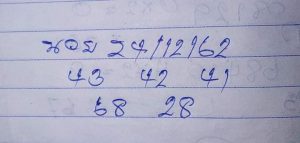 หอย 24/12/62
43 42 41
68 28